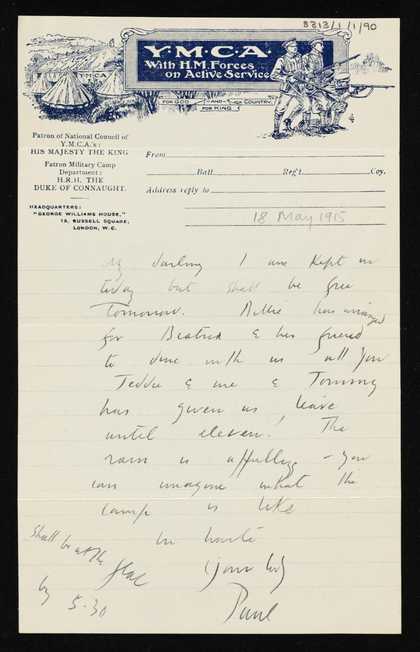 8313/1/1/90
Y.M.C.A.
With H.M. Forces
on Active Service
Y M C A
FOR GOD
AND FOR COUNTRY.
FOR KING
Patron of National Council of
Y.M.C.A.'s:
HIS MAJESTY THE KING
Patron Military Camp
Department:
H.R.H. THE
DUKE OF CONNAUGHT.
HEADQUARTERS:
"GEORGE WILLIAMS HOUSE,"
13, RUSSELL SQUARE,
LONDON, W.C.
From
Batt. Reg't. Coy.
Address reply to
18 May 1915
My darling I am kept in
today but shall be free
Tomorrow. Billie has arranged
for Beatrice & his friend
to dine with us all you
Teddie & me & Tommy
has given us leave
until eleven. The
rain is appalling - you
can imagine what the
camp is like
In haste
Your
Paul
Shall be at the
by 5.30